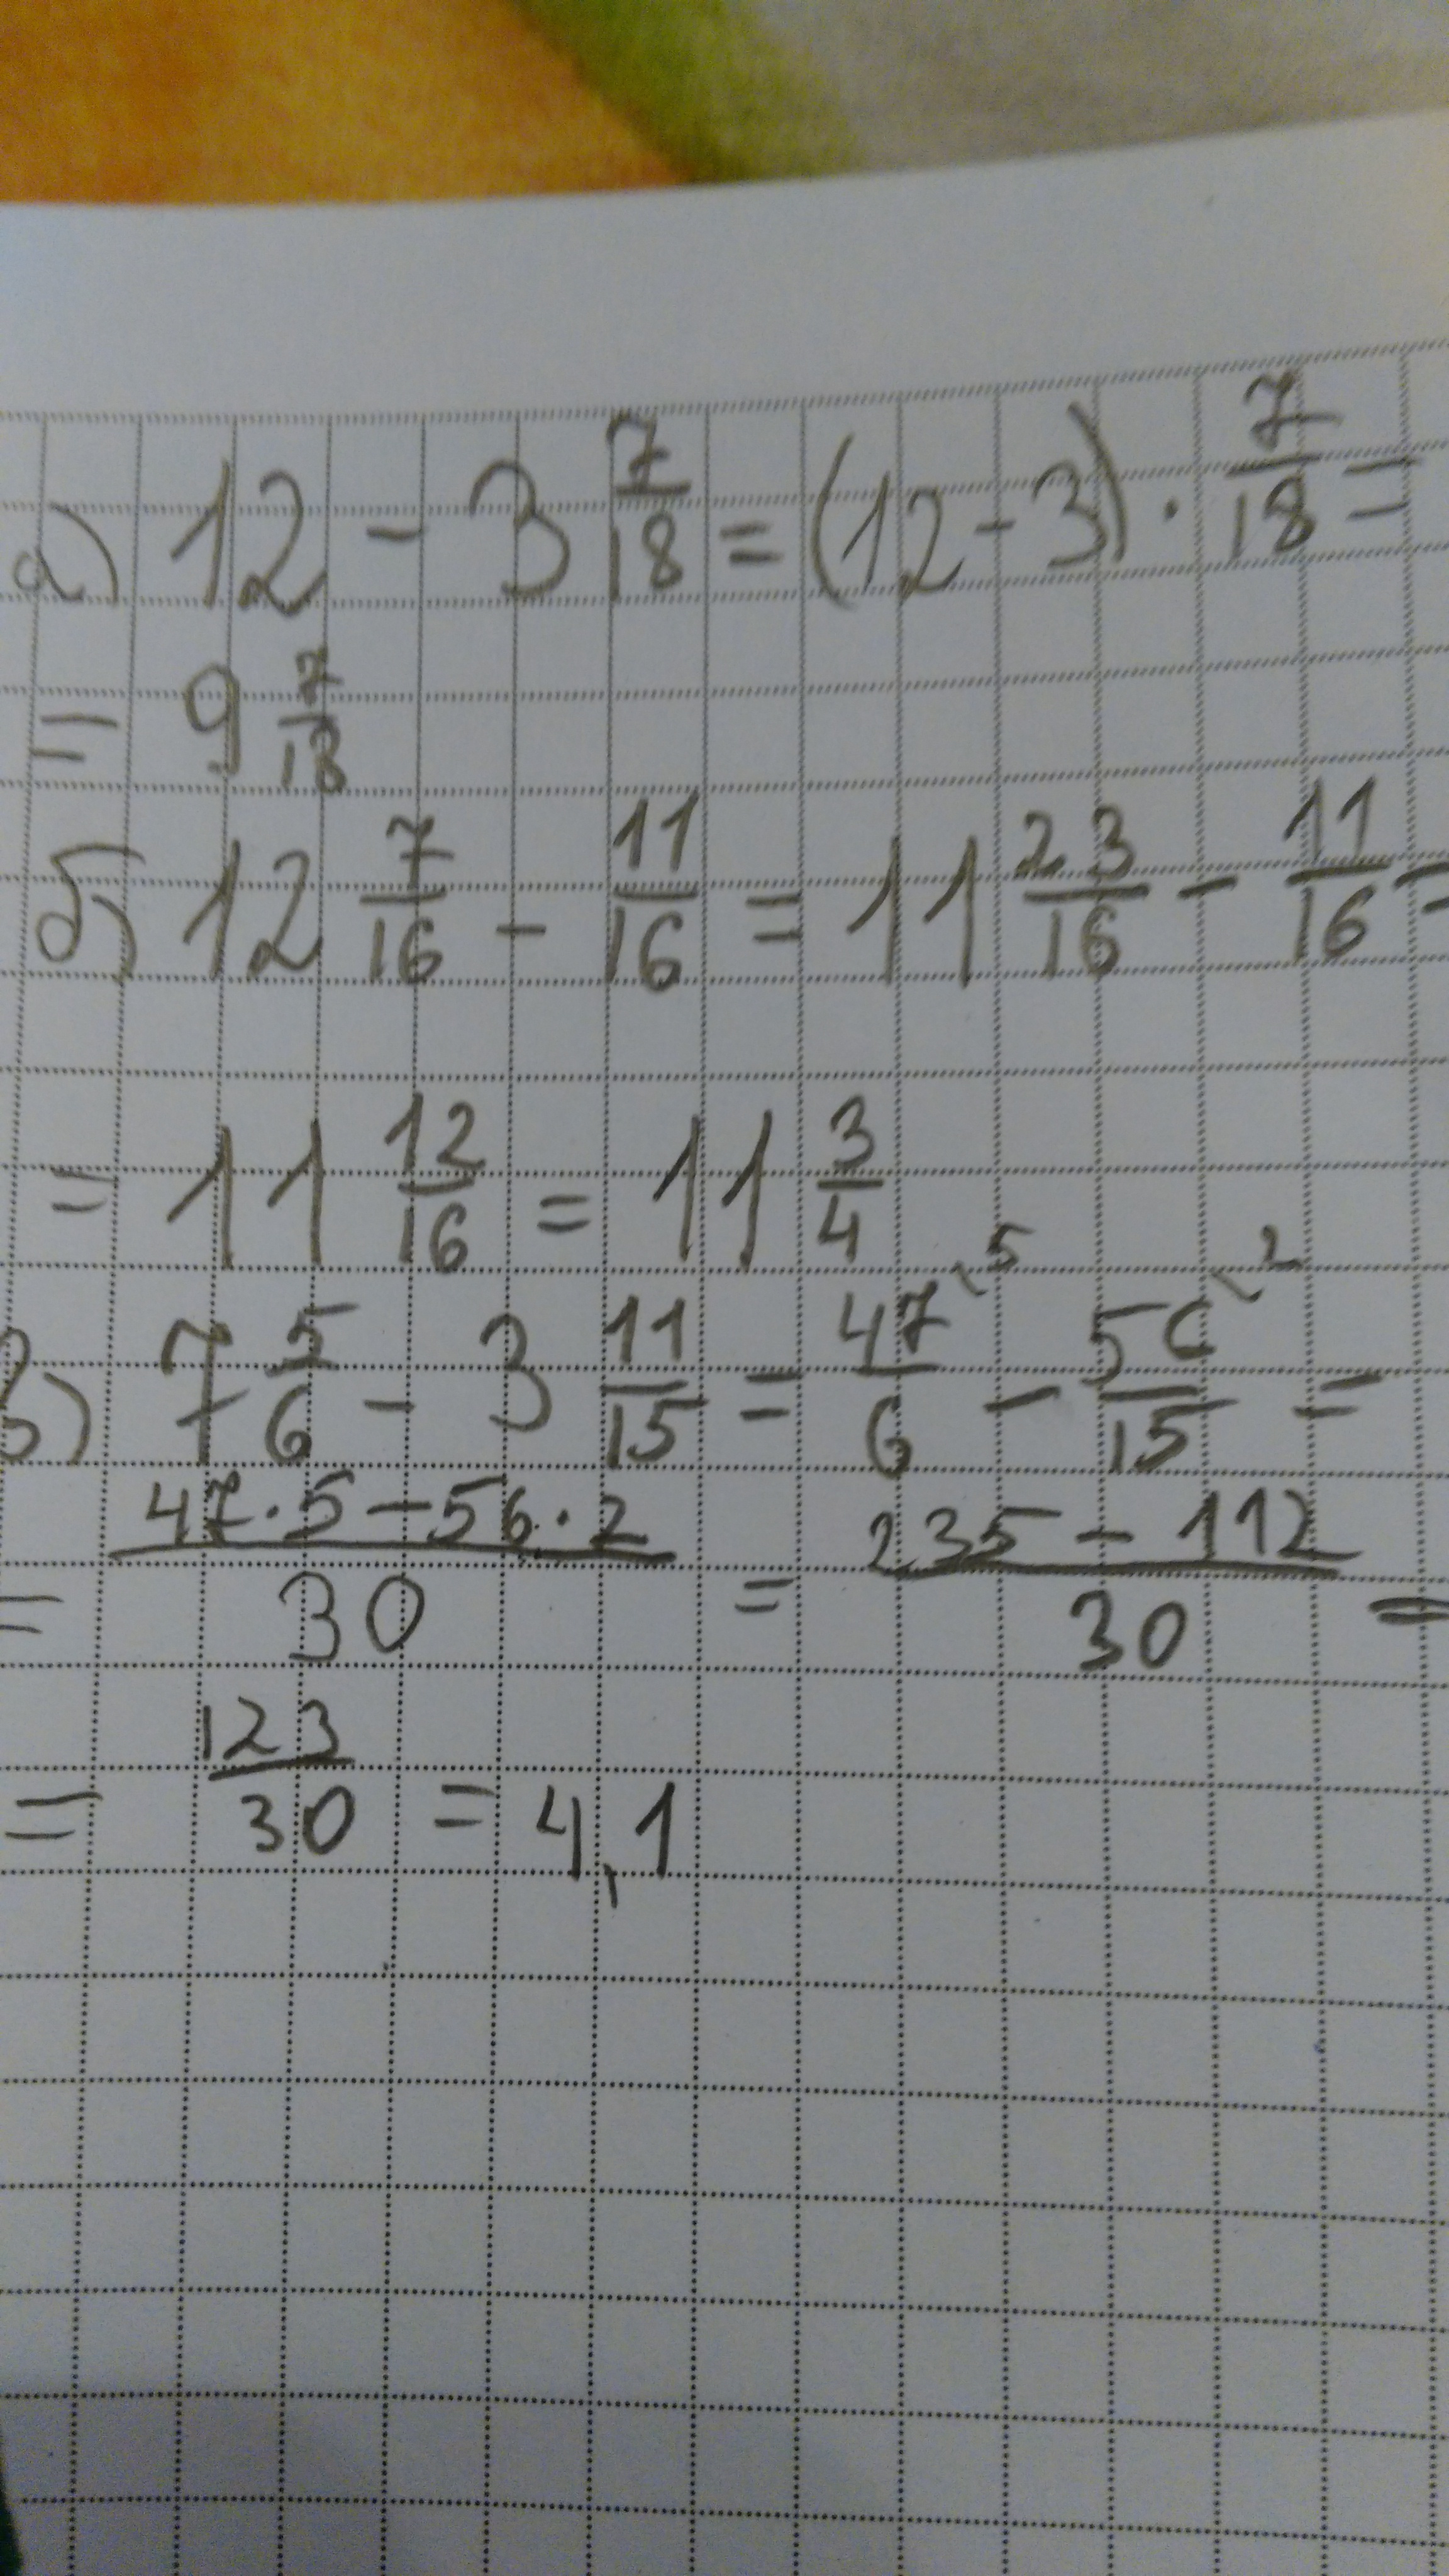 а) 12 - 3 7/18 = (12 - 3) · 7/18 =
= 9 7/18
б) 12 7/16 - 11/16 = 11 23/16 - 11/16 =
= 11 12/16 = 11 3/4
в) 7 5/6 - 3 11/15 = 47\5/6 - 56\2/15 =
= 47·5-56·2/30 = 235-112/30 =
= 123/30 = 4,1